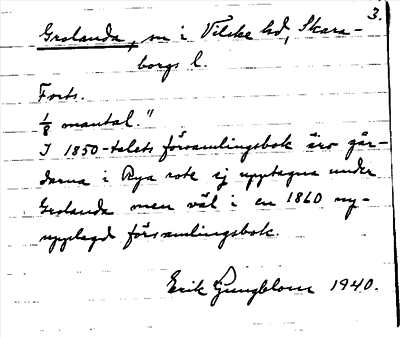 3.
Grolanda, sn i Vilske hd, Skara-
borgs l.
Forts.
1/8 mantal."
I 1850-talets församlingsbok äro går-
darna i Rya rote ej upptagna under
Grolanda men väl i en 1860 ny-
upplagd församlingsbok.
Erik Ljungblom 1940.